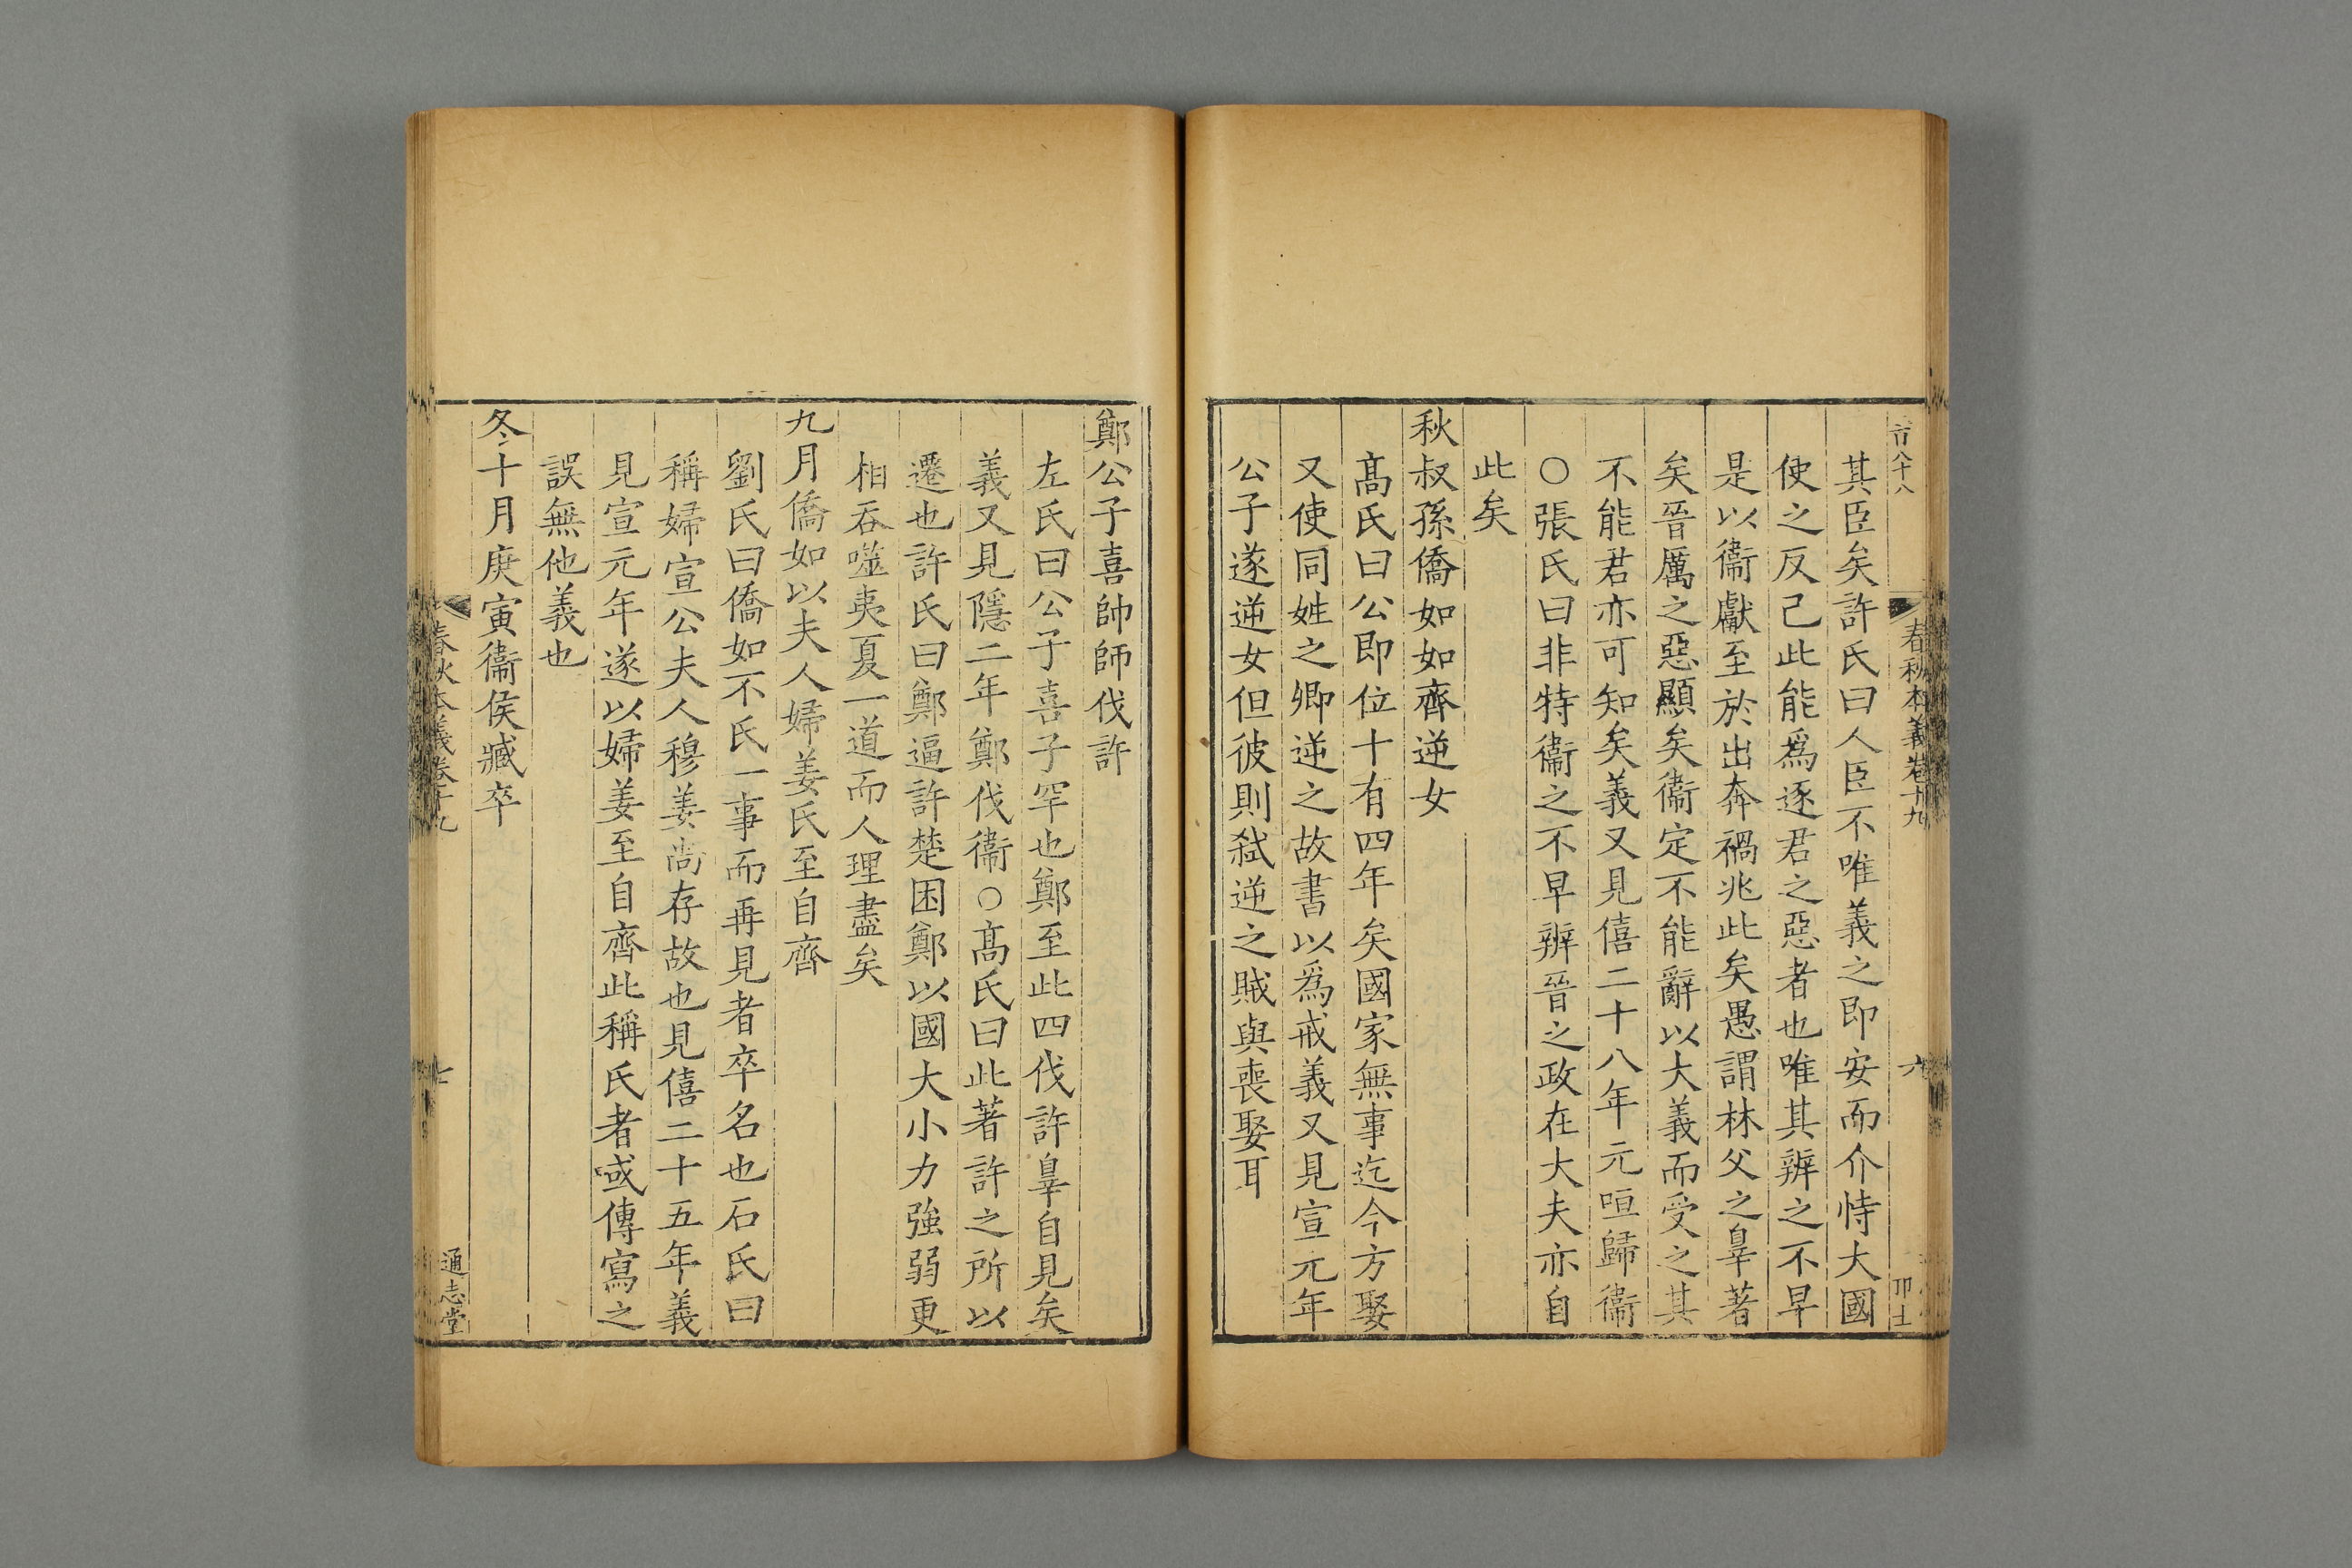 春秋本義卷十九
六
其臣矣許氏曰人臣不唯義之即安而介恃大國
使之反己此能爲逐君之惡者也唯其辨之不早
是以衞獻至於出奔禍兆此矣愚謂林父之辠著
矣晉厲之惡顯矣衞定不能辭以大義而受之其
不能君亦可知矣義又見僖二十八年元咺歸衞
○張氏曰非特衞之不早辨晉之政在大夫亦自
此矣
秋叔孫僑如如齊逆女
髙氏曰公即位十有四年矣國家無事迄今方娶
又使同姓之卿逆之故書以爲戒義又見宣元年
公子遂逆女但彼則弑逆之賊與喪娶耳
鄭公子喜帥師伐許
左氏曰公子喜子罕也鄭至此四伐許辠自見矣
義又見隱二年鄭伐衞○髙氏曰此著許之所以
遷也許氏曰鄭逼許楚困鄭以國大小力強弱更
相吞噬夷夏一道而人理盡矣
九月僑如以夫人婦姜氏至自齊
劉氏曰僑如不氏一事而再見者卒名也石氏曰
稱婦宣公夫人穆姜尚存故也見僖二十五年義
見宣元年遂以婦姜至自齊此稱氏者或傳寫之
誤無他義也
冬十月庚寅衞侯臧卒
春秋本義卷十九
七
通志堂